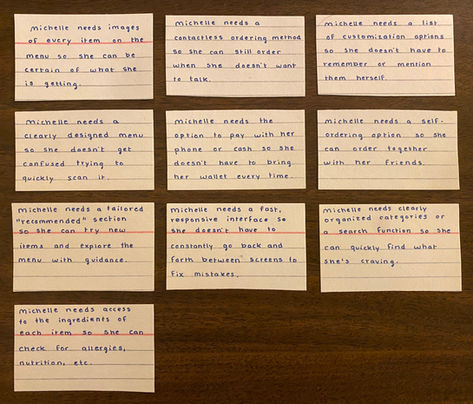 Michelle needs images
of every item on the
menu so she can be
certain of what she
is getting.
Michelle needs a
contactless ordering method
so she can still order
when she doesn't want
to talk.
Michelle needs a list
of customization options
so she doesn't have to
remember or mention
them herself.
Michelle needs a
clearly designed menu
so she doesn't get
confused trying to
quickly scan it.
Michelle needs the
option to pay with her
phone or cash so she
doesn't have to bring
her wallet every time.
Michelle needs a self-
ordering option so she
can order together
with her friends.
Michelle needs a tailored
"recommended" section
so she can try new
items and explore the
menu with guidance.
Michelle needs a fast,
responsive interface so
she doesn't have to
constantly go back and
forth between screens to
fix mistakes.
Michelle needs clearly
organized categories or
a search function so she
can quickly find what
she's craving.
Michelle needs access
to the ingredients of
each item so she can
check for allergies,
nutrition, etc.